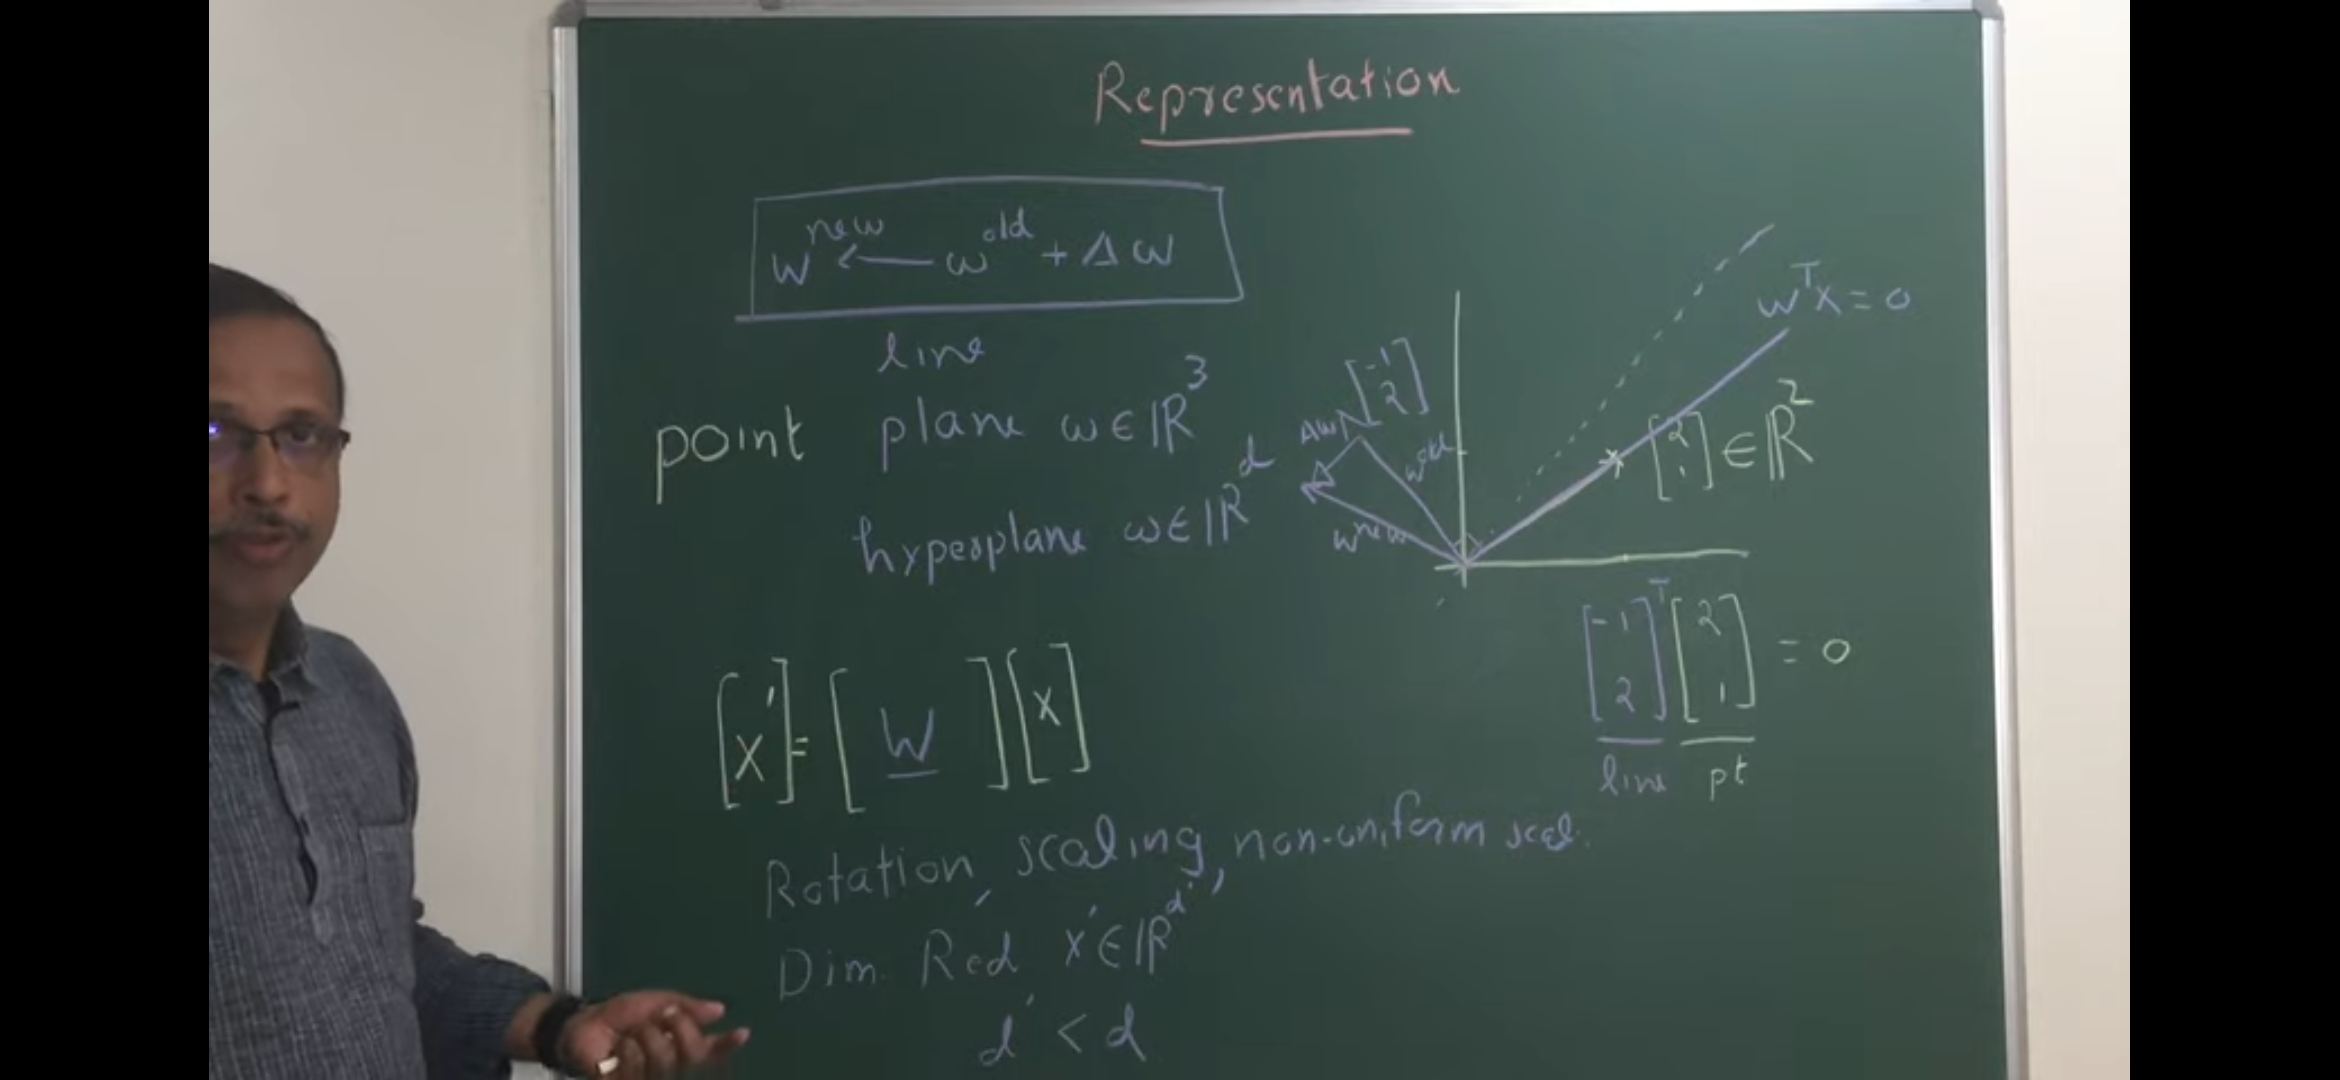 Representation
w^new ← w^old + Δw
line
point plane w ∈ ℝ^3
hyperplane w ∈ ℝ^d
w^T x = 0
[-1 2]
Δw
w^old
w^new
[2 1] ∈ ℝ^2
[-1 2]^T [2 1] = 0
line pt
[x'] = [W] [x]
Rotation, scaling, non-uniform scal.
Dim. Red x' ∈ ℝ^d'
d' < d